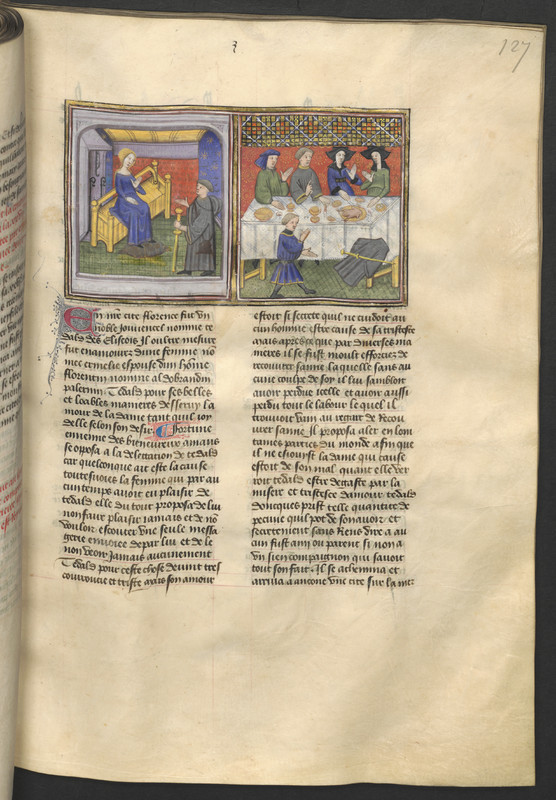 127
En nre cite florence fut vn
noble Jouuencel nomme te
dald des Elisois Il oultre mesure
fut enamoure dune femme nō
mee ermeline espouse dun hōme
florentin nomme aldobrandin
palermin Tedald pour ses belles
et loables manieres desseruy la
mour de la dame tant quil ioy
delle selon son desir Fortune
ennemie des bieneureux amans
se opposa a la delectation de tedald
car quelconque ait este la cause
toutesuoies la femme qui par au
cun temps auoit eu plaisir de
tedald elle du tout proposa de lui
non faire plaisir Jamais et de nō
vouloir escouter vne seule messa
gerie enuoiee de par lui et de le
non veoir Jamais aucunement
Tedald pour ceste chose deuint tres
courroucie et triste mais son amour
estoit si secrete quil ne cuidoit au
cun homme estre cause de sa tristesse
Mais apres ce que par diuerses ma
nieres il se fust moult efforcie de
recouurer lamie laquelle sans au
cune coulpe de soy il lui sambloit
auoir perdue icelle et auoir aussi
perdu tout le labour le quel il
trouuoit vain au regart de Recou
urer lamie Il proposa aler en loin
taines parties du monde afin que
il ne esiouyst la dame qui cause
estoit de son mal quant elle ver
roit tedald estre degaste par la
misere et tristesse damour tedald
doncques prist telle quantite de
pecune quil pot de son auoir et
secretement sans Riens dire a au
cun sien amy ou parent si non a
vn sien compaignon qui sauoit
tout son fait Il se achemina et
arriua a ancone vne cite sur la mer